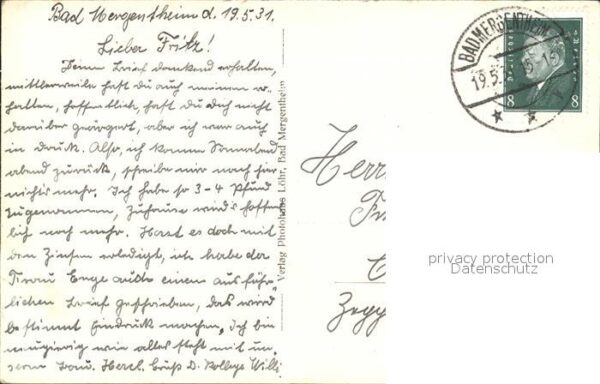 Bad Mergentheim d. 19.5.31.
Lieber Fritz!
Deinen Brief dankend erhalten,
mittlerweile hast du auch meinen er-
halten, hoffentlich, hast du dich nicht
darüber geärgert, aber ich war auch
in Druck. Also, ich komme Sonnabend
abend zurück, schreibe mir nach hier
nichts mehr. Ich habe so 3-4 Pfund
zugenommen, Zuhause wird's hoffent-
lich noch mehr. Hast es doch mit
den Zinsen erledigt, ich habe der
Frau Enge auch einen ausführ-
lichen Brief geschrieben, das wird
bestimmt Eindruck machen. Ich bin
neugierig wie alles steht mit un-
serm Herzl. Grüß D. Kollege Willi
Verlag Photohaus Löhr, Bad Mergentheim
BAD MERGENTHEIM
19.5.
8 8
Herr
Zepp
privacy protection
Datenschutz